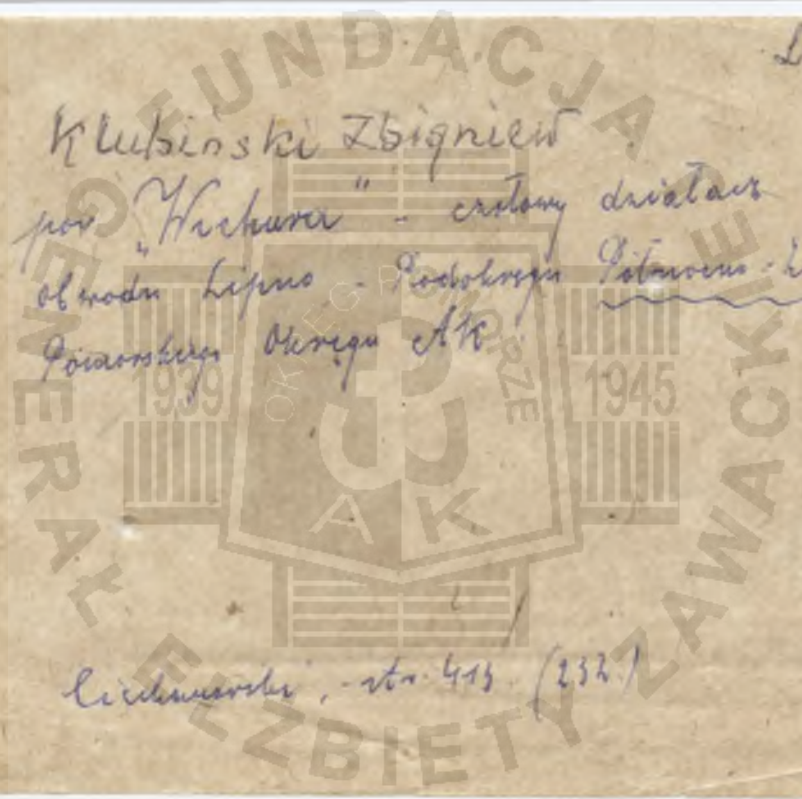 Klubiński Zbigniew
por "Wichura" - czołowy działacz
obwodu Lipno - Podokręgu
Pomorskiego Okręgu AK
str. 413 (232)
FUNDACJA GENERAŁ ELŻBIETY ZAWACKIEJ
OKRĘG POMORZE
1939 1945
AK